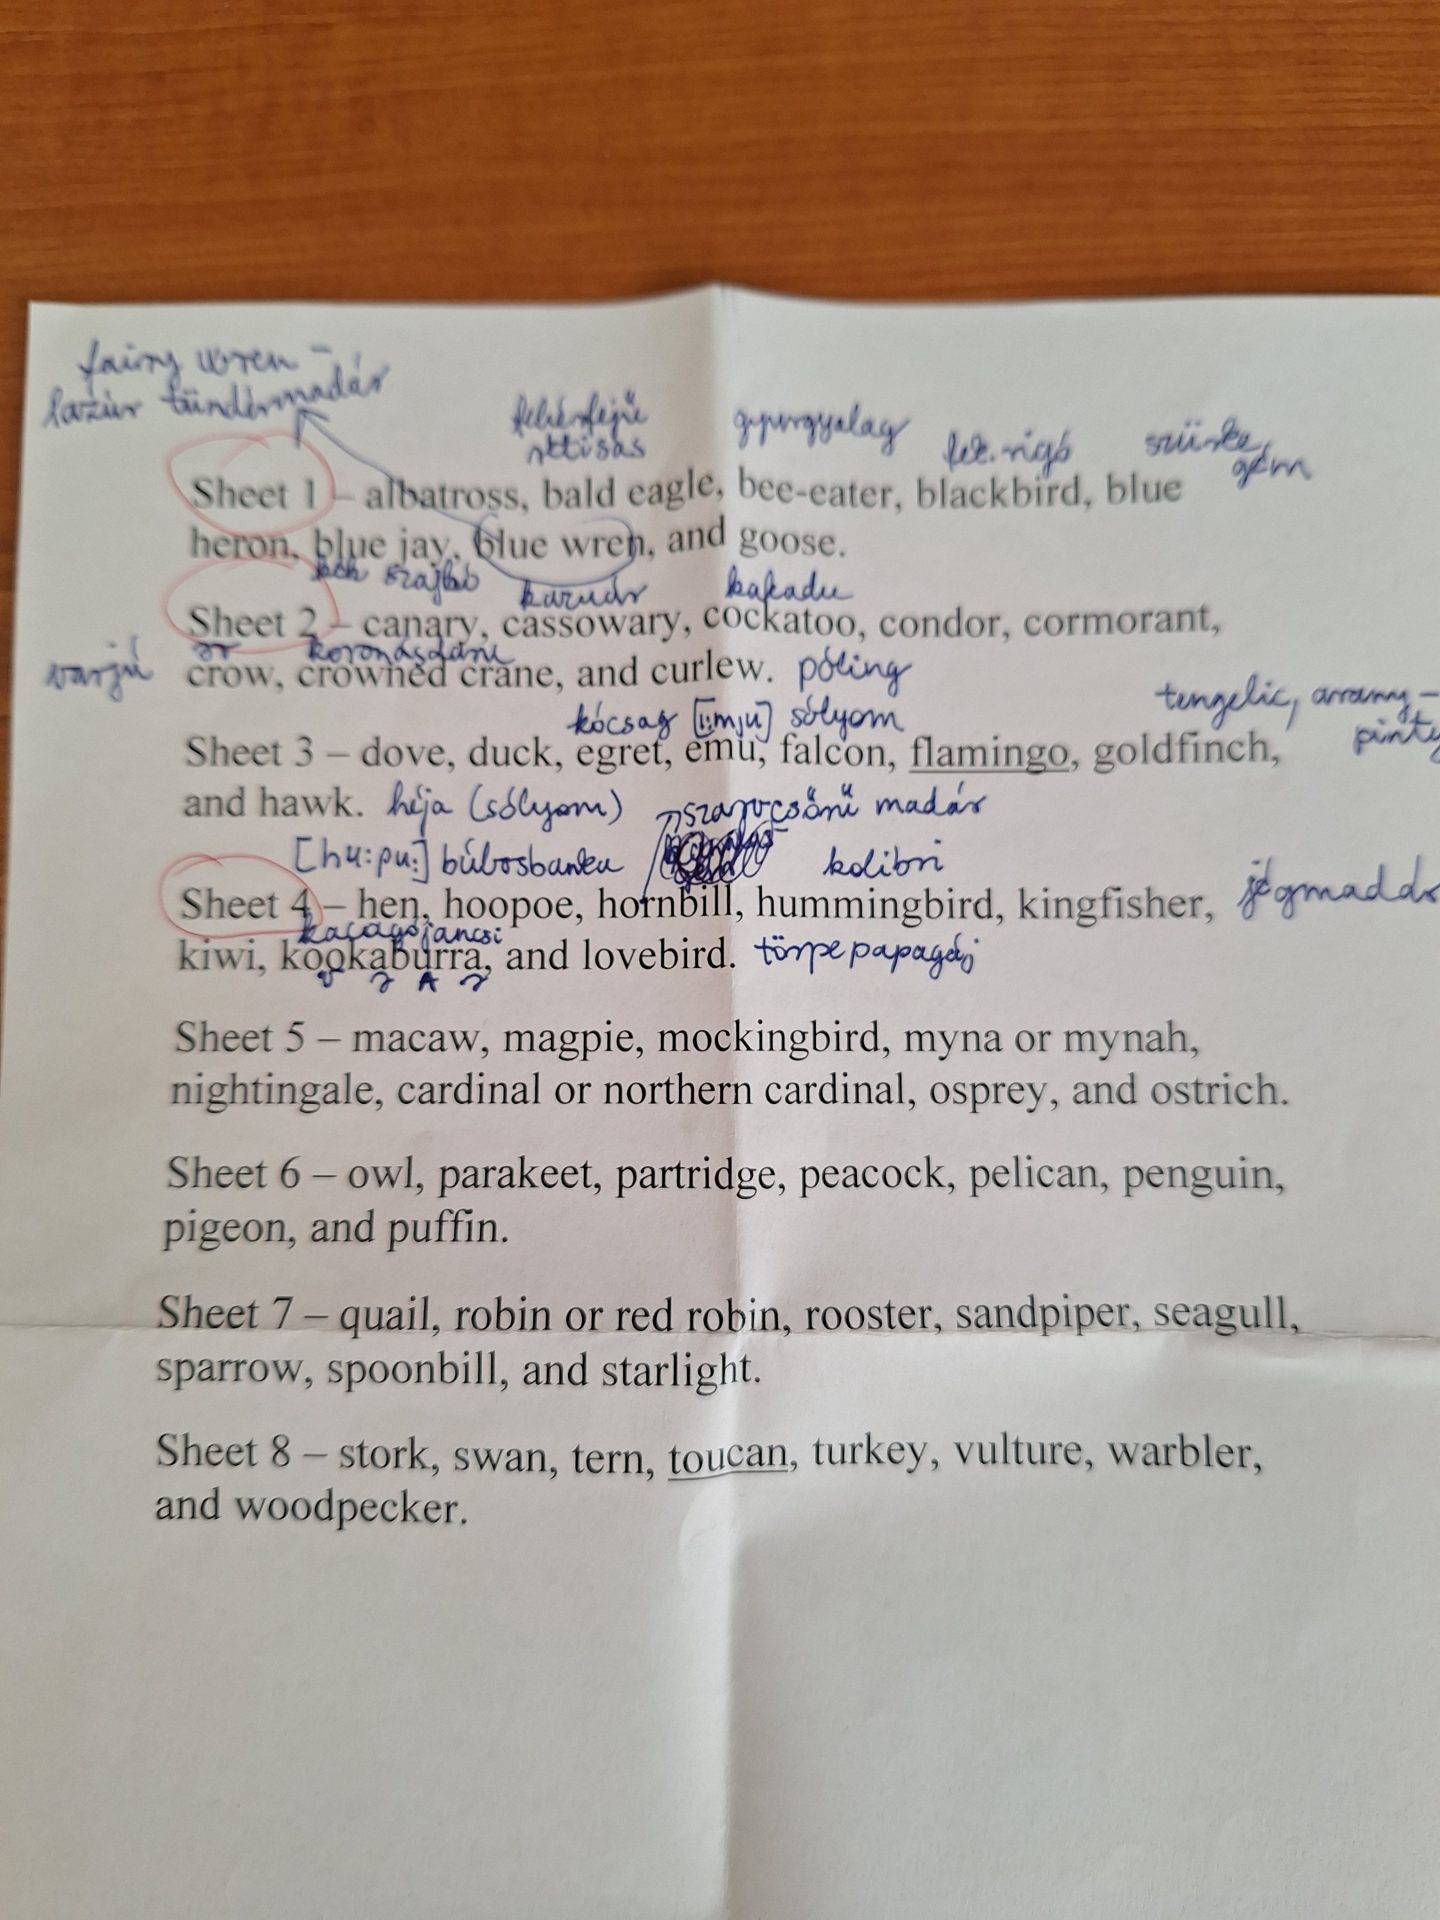 fairy wren –
lazúr tündérmadár
fehérfejű
rétisas
gyurgyalag
fek. rigó
szürke
gém
Sheet 1 – albatross, bald eagle, bee-eater, blackbird, blue
heron, blue jay, blue wren, and goose.
kék szajkó
kazuár
kakadu
Sheet 2 – canary, cassowary, cockatoo, condor, cormorant,
varjú
koronásdaru
crow, crowned crane, and curlew. póling
kócsag [i:mju] sólyom
tengelic, arany–
pinty
Sheet 3 – dove, duck, egret, emu, falcon, flamingo, goldfinch,
and hawk. héja (sólyom)
szarvcsőrű madár
[hu:pu:] búbosbanka
kolibri
Sheet 4 – hen, hoopoe, hornbill, hummingbird, kingfisher, jégmadár
kacagójancsi
kiwi, kookaburra, and lovebird. törpepapagáj
Sheet 5 – macaw, magpie, mockingbird, myna or mynah,
nightingale, cardinal or northern cardinal, osprey, and ostrich.
Sheet 6 – owl, parakeet, partridge, peacock, pelican, penguin,
pigeon, and puffin.
Sheet 7 – quail, robin or red robin, rooster, sandpiper, seagull,
sparrow, spoonbill, and starlight.
Sheet 8 – stork, swan, tern, toucan, turkey, vulture, warbler,
and woodpecker.